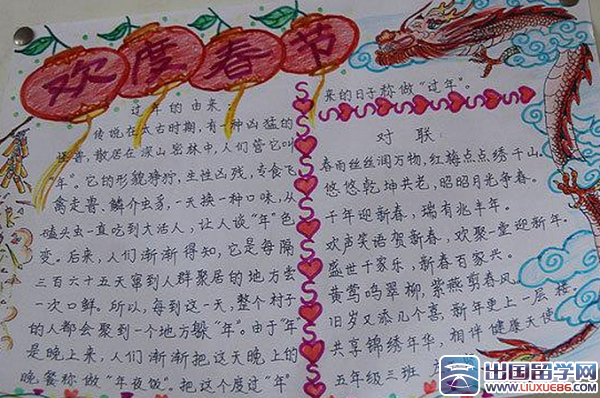 欢度春节
过年的由来:
传说在太古时期,有一种凶猛的
怪兽,散居在深山密林中,人们管它叫
年"。它的形貌狰狞,生性凶残,专食飞
禽走兽、鳞介虫豸,一天换一种口味,从
磕头虫一直吃到大活人,让人谈"年"色
变。后来,人们渐渐得知,它是每隔
三百六十五天窜到人群聚居的地方尝
一次口鲜。所以,每到这一天,整个村子
的人都会聚到一个地方躲"年"。由于"年
是晚上来,人们渐渐把这天晚上的
晚餐称做"年夜饭"。把这个度过"年"
来的日子称做"过年"。
对联:
春雨丝丝润万物,红梅点点绣千山。
悠悠乾坤共老,昭昭日月争春。
千年迎新春,瑞有兆丰年。
欢声笑语贺新春,欢聚一堂迎新年。
盛世千家乐,新春百家兴。
黄莺鸣翠柳,紫燕剪春风。
旧岁又添几个喜,新年更上一层楼
共享锦绣年华,相伴健康天使
五年级三班
出国留学网
WWW.LIUXUE86.COM